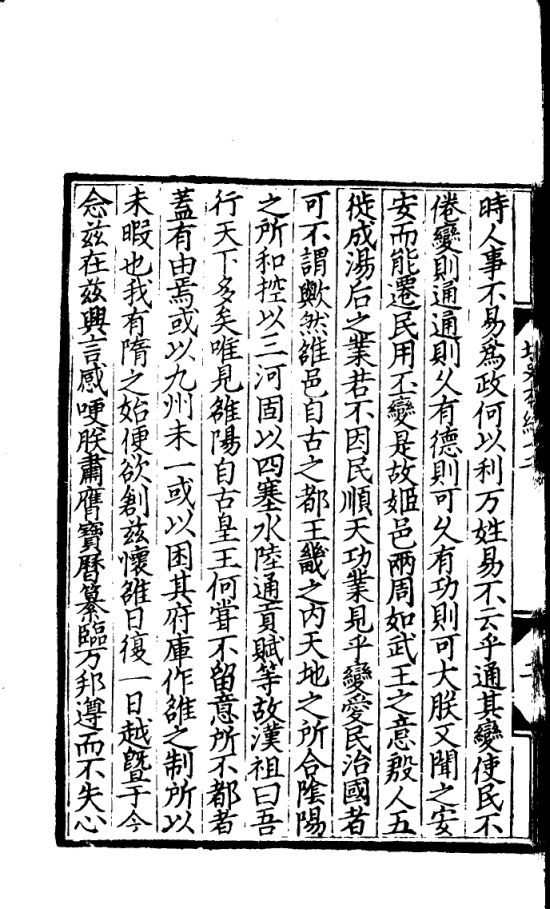 時人事不易為政何以利万姓易不云乎通其變使民不
倦變則通通則久有德則可久有功則可大朕又聞之安
安而能遷民用丕變是故姬邑兩周如武王之意殷人五
徙成湯后之業若不因民順天功業見乎變愛民治國者
可不謂歟然雒邑自古之都王畿之内天地之所合陰陽
之所和控以三河固以四塞水陸通貢賦等故漢祖曰吾
行天下多矣唯見雒陽自古皇王何甞不留意所不都者
蓋有由焉或以九州未一或以困其府庫作雒之制所以
未暇也我有隋之始便欲創茲懷雒日復一日越暨于今
念兹在兹興言感哽朕肅膺寶曆纂臨万邦遵而不失心